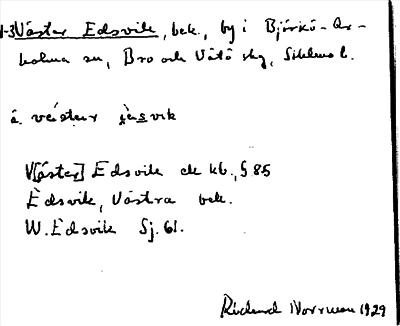 1-3 Väster Edsvik, bek., by i Björkö-Ar-
holma sn, Bro och Vätö skg, Sthlms l.
a. västər
V[äster] Edsvik ek kb., § 85
Edsvik, Västra bek.
W. Edsvik Sj. 61.
Rickard Norrman 1929